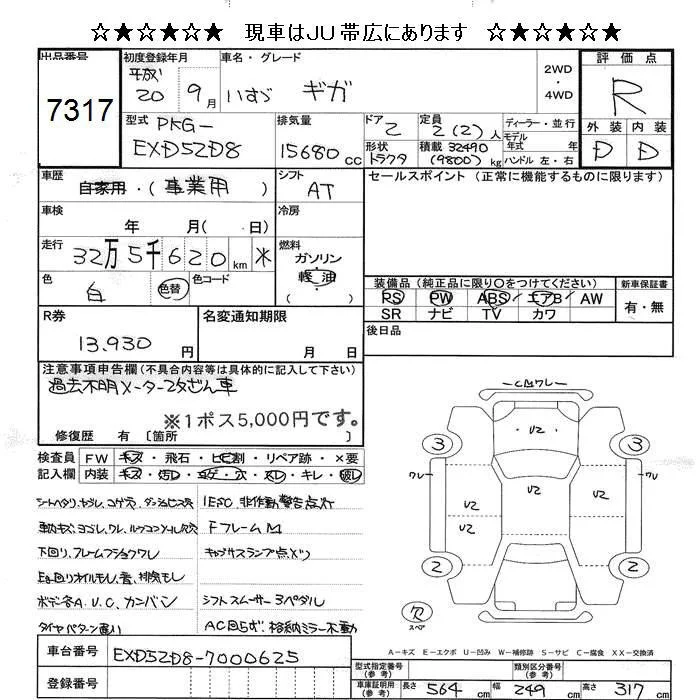 ☆★☆★☆★ 現車はJU帯広にあります ☆★☆★☆★
出品番号 初度登録年月 車名・グレード 2WD ・ 4WD 評価点
7317 平成 20 9月 いすゞ ギガ R
型式 PKG- EXD52D8 排気量 15680cc ドア 2 定員 2(2)人 ディーラー・並行 外装 内装
形状 トラクタ 積載 32490 (9800)kg モデル年式 年 ハンドル 左・右 D D
車歴 自家用・(事業用) シフト AT セールスポイント (正常に機能するものに限ります)
車検 年 月( 日) 冷房
走行 32万5千620km ※ 燃料 ガソリン 軽油 ( )
色 白 色替 色コード
装備品 (純正品に限り○をつけてください) 新車保証書
PS PW ABS エアB AW 有・無
SR ナビ TV カワ
R券 13,930円 名変通知期限 月 日 後日品
注意事項申告欄(不具合内容等は具体的に記入して下さい)
過去不明メーター改ざん車
※1ポス5,000円です。
修復歴 有 〔箇所 〕
検査員 FW キズ・飛石・ヒビ割・リペア跡・×要
記入欄 内装 キズ・汚レ・コゲ・穴・スレ・キレ・破レ
IESC、非作動警告点灯
Fフレーム
下回り、フレーム ワレ
ボデー各A.U.C.カンバン シフトスムーサー3ペダル
格納ミラー不動
C ワレ
U2
U2
U2
U2
U2
ワレ
ワレ
3
3
2
2
スペア
A-キズ E-エクボ U-凹み W-補修跡 S-サビ C-腐食 XX-交換済
車台番号 EXD52D8-7000625
登録番号
型式指定番号 (参考) 類別区分番号 (参考)
車庫証明用 (参考) 長さ 564cm 幅 249cm 高さ 317cm